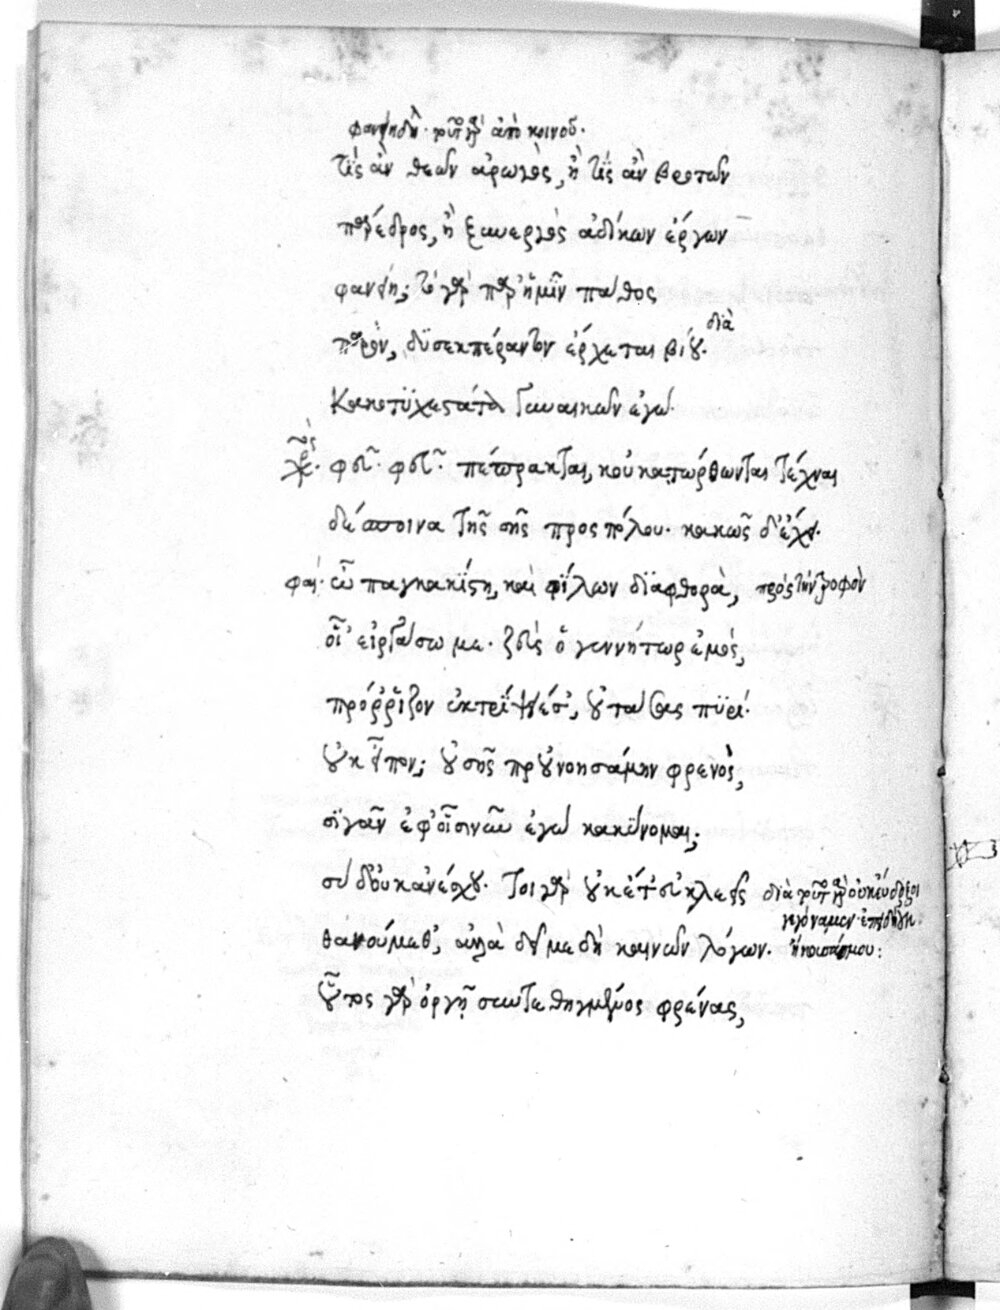 φανείη δηλ. τοῦτο γὰρ ἀπὸ κοινοῦ.
τίς ἂν θεῶν ἀρωγὸς, ἢ τίς ἂν βροτῶν
πάρεδρος, ἢ ξυνεργὸς ἀδίκων ἔργων
φανείη; τὸ γὰρ παρ' ἡμῖν πάθος
διὰ
παρὸν, δυσεκπέραντον ἔρχεται βίου.
κακοτυχεστάτα γυναικῶν ἐγώ.
χορός. φεῦ. φεῦ. πέπρακται, κοὐ κατώρθωνται τέχναι
δέσποινα τῆς σῆς προσπόλου. κακῶς δ' ἔχει.
φαί. ὦ παγκακίστη, καὶ φίλων διαφθορὰ, πρὸς τὴν τροφὸν
οἷ' εἰργάσω με. ζεύς ὁ γεννήτωρ ἐμὸς,
πρόρριζον ἐκτρίψειέ σ', οὐτάσας πυρί.
οὐκ εἶπον; οὐ σῆς προὐνοησάμην φρενὸς,
σιγᾶν ἐφ' οἷσι νῦν ἐγὼ κακύνομαι;
σὺ δ' οὐκ ἀνέσχου. τοιγὰρ οὐκέτ' εὐκλεεῖς διὰ τοῦτο γὰρ οὐκ εὔδοξοι
γεγόναμεν
θανούμεθ', ἀλλὰ δεῖ με δὴ καινῶν λόγων.
οὗτος γὰρ ὀργῇ συντεθηγμένος φρένας,